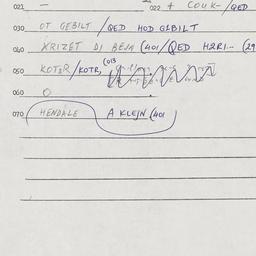 021 — 022 + COUK-/QED
030 OT GEBILT /QED HOD GEBILT
040 KRIZET DI BEJA (401/QED H2RI-- (29
050 KOT2R/KOTR, (013
060 O
070 HENDALE A KLEJN (401